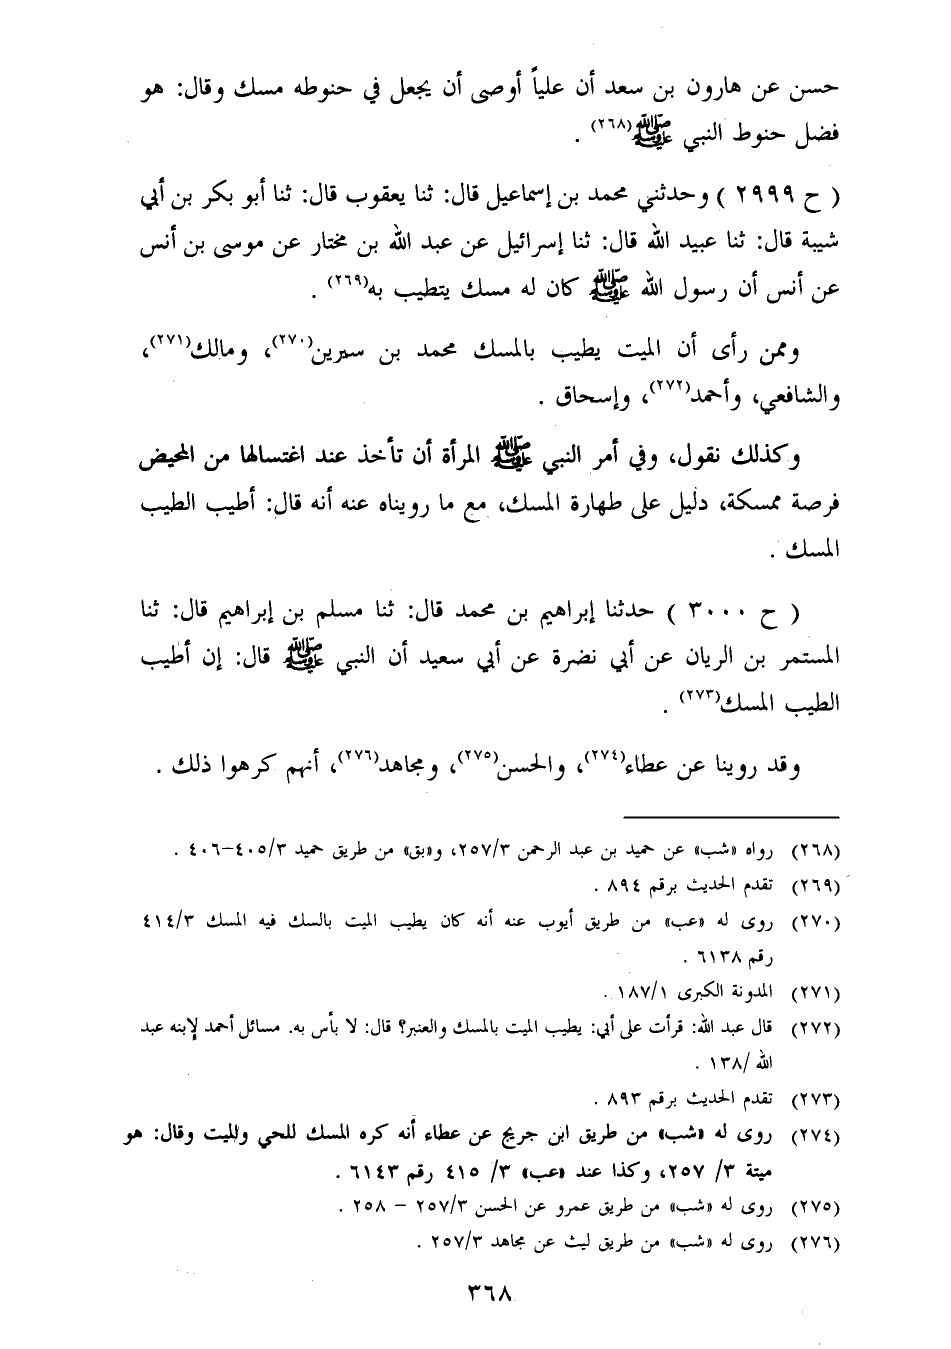 حسن عن هارون بن سعد أن علياً أوصى أن يجعل في حنوطه مسك وقال: هو
فضل حنوط النبي ﷺ(٢٦٨) .
( ح ٢٩٩٩ ) وحدثني محمد بن إسماعيل قال: ثنا يعقوب قال: ثنا أبو بكر بن أبي
شيبة قال: ثنا عبيد الله قال: ثنا إسرائيل عن عبد الله بن مختار عن موسى بن أنس
عن أنس أن رسول الله ﷺ كان له مسك يتطيب به(٢٦٩) .
وممن رأى أن الميت يطيب بالمسك محمد بن سيرين(٢٧٠)، ومالك(٢٧١)،
والشافعي، وأحمد(٢٧٢)، وإسحاق .
وكذلك نقول، وفي أمر النبي ﷺ المرأة أن تأخذ عند اغتسالها من المحيض
فرصة ممسكة، دليل على طهارة المسك، مع ما رويناه عنه أنه قال: أطيب الطيب
المسك .
( ح ٣٠٠٠ ) حدثنا إبراهيم بن محمد قال: ثنا مسلم بن إبراهيم قال: ثنا
المستمر بن الريان عن أبي نضرة عن أبي سعيد أن النبي ﷺ قال: إن أطيب
الطيب المسك(٢٧٣) .
وقد روينا عن عطاء(٢٧٤)، والحسن(٢٧٥)، ومجاهد(٢٧٦)، أنهم كرهوا ذلك .
(٢٦٨) رواه «شب» عن حميد بن عبد الرحمن ٢٥٧/٣، و«بق» من طريق حميد ٤٠٥/٣-٤٠٦ .
(٢٦٩) تقدم الحديث برقم ٨٩٤ .
(٢٧٠) روى له «عب» من طريق أيوب عنه أنه كان يطيب الميت بالسك فيه المسك ٤١٤/٣
رقم ٦١٣٨ .
(٢٧١) المدونة الكبرى ١٨٧/١ .
(٢٧٢) قال عبد الله: قرأت على أبي: يطيب الميت بالمسك والعنبر؟ قال: لا بأس به. مسائل أحمد لإبنه عبد
الله /١٣٨ .
(٢٧٣) تقدم الحديث برقم ٨٩٣ .
(٢٧٤) روى له «شب» من طريق ابن جريج عن عطاء أنه كره المسك للحي والميت وقال: هو
ميتة ٣/ ٢٥٧، وكذا عند «عب» ٣/ ٤١٥ رقم ٦١٤٣ .
(٢٧٥) روى له «شب» من طريق عمرو عن الحسن ٢٥٧/٣ – ٢٥٨ .
(٢٧٦) روى له «شب» من طريق ليث عن مجاهد ٢٥٧/٣ .
٣٦٨